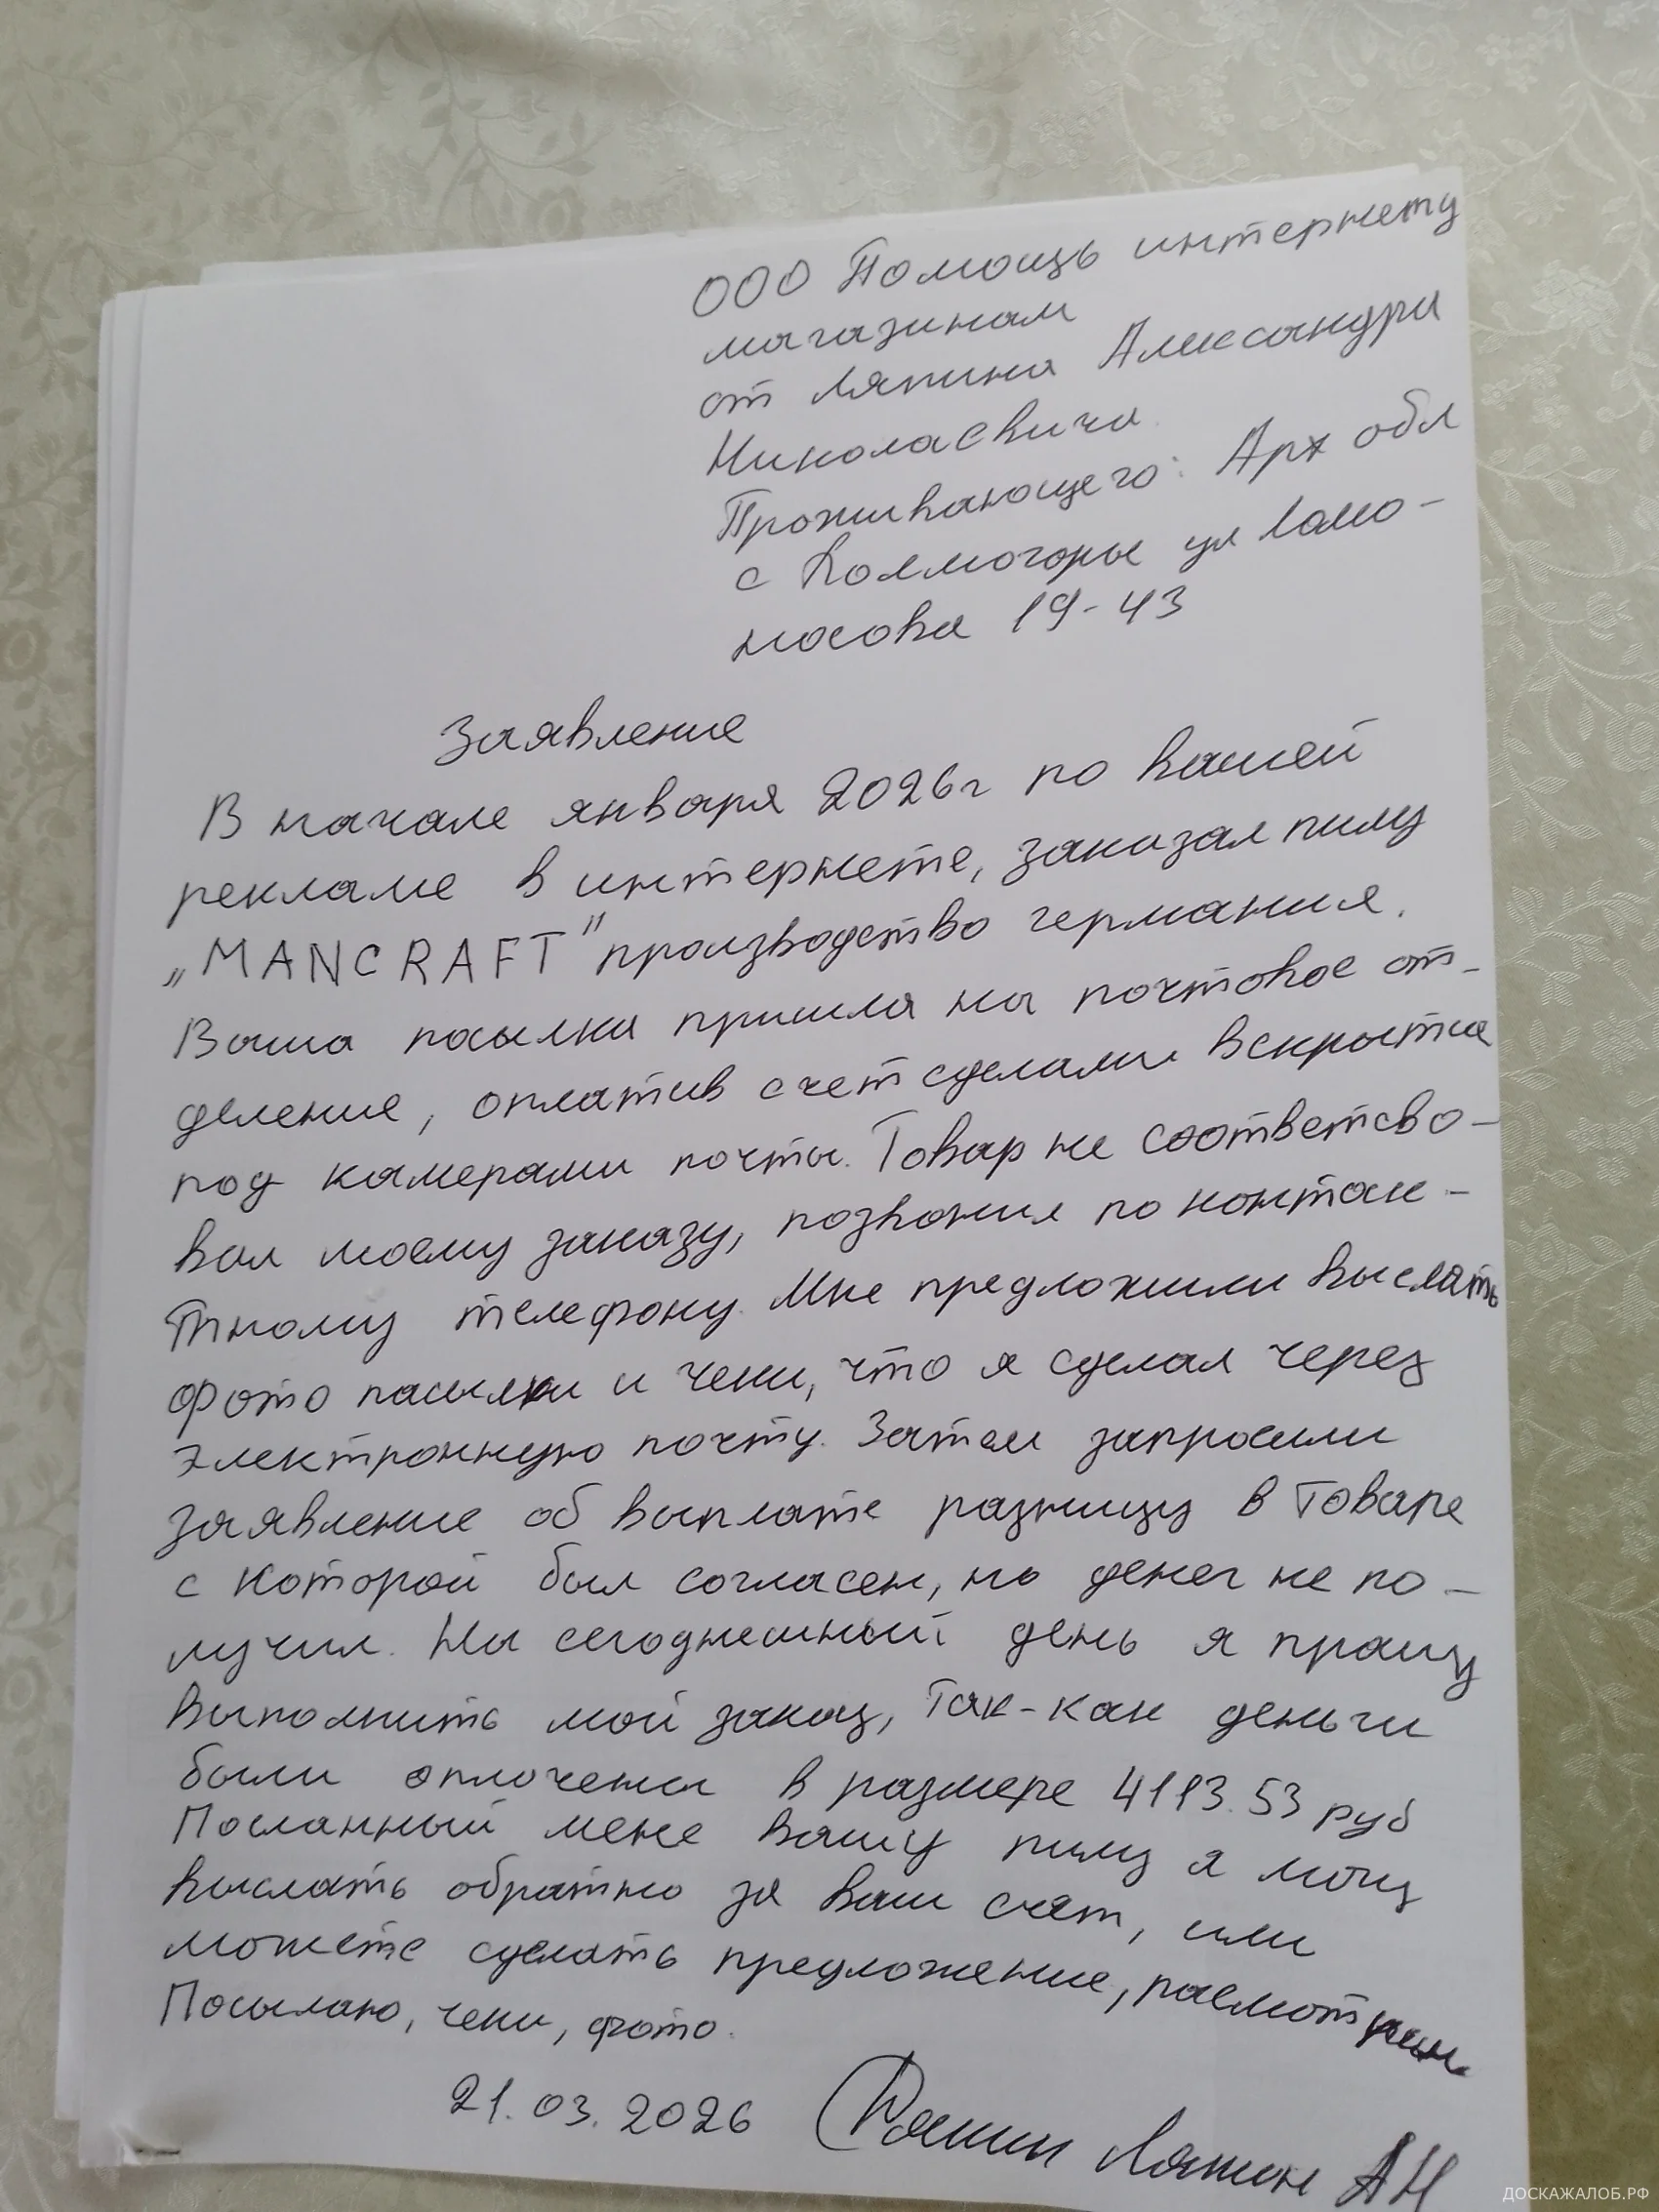 ООО Помощь интернету
магазинам
от Ляпина Александра
Николаевича
Проживающего: Арх обл
с Холмогоры ул Ломо-
носова 19-43
Заявление
В начале января 2026г по вашей
рекламе в интернете, заказал пилу
„MANCRAFT" производство германия.
Ваша посылка пришла на почтовое от-
деление, оплатив счет сделали вскрытие
под камерами почты. Товар не соответсво-
вал моему заказу, позвонил по контак-
тному телефону. Мне предложили выслать
фото посылки и чеки, что я сделал через
электронную почту. Затем запросили
заявление об выплате разницу в товаре
с которой был согласен, но денег не по-
лучил. На сегоднешный день я прошу
выполнить мой заказ, так-как деньги
были оплочены в размере 4193.53 руб
Посланный мене вашу пилу я могу
выслать обратно за ваш счет, или
можете сделать предложение, расмотрим
Посылаю, чеки, фото.
21.03.2026 Ляпин АН
ДОСКАЖАЛОБ.РФ